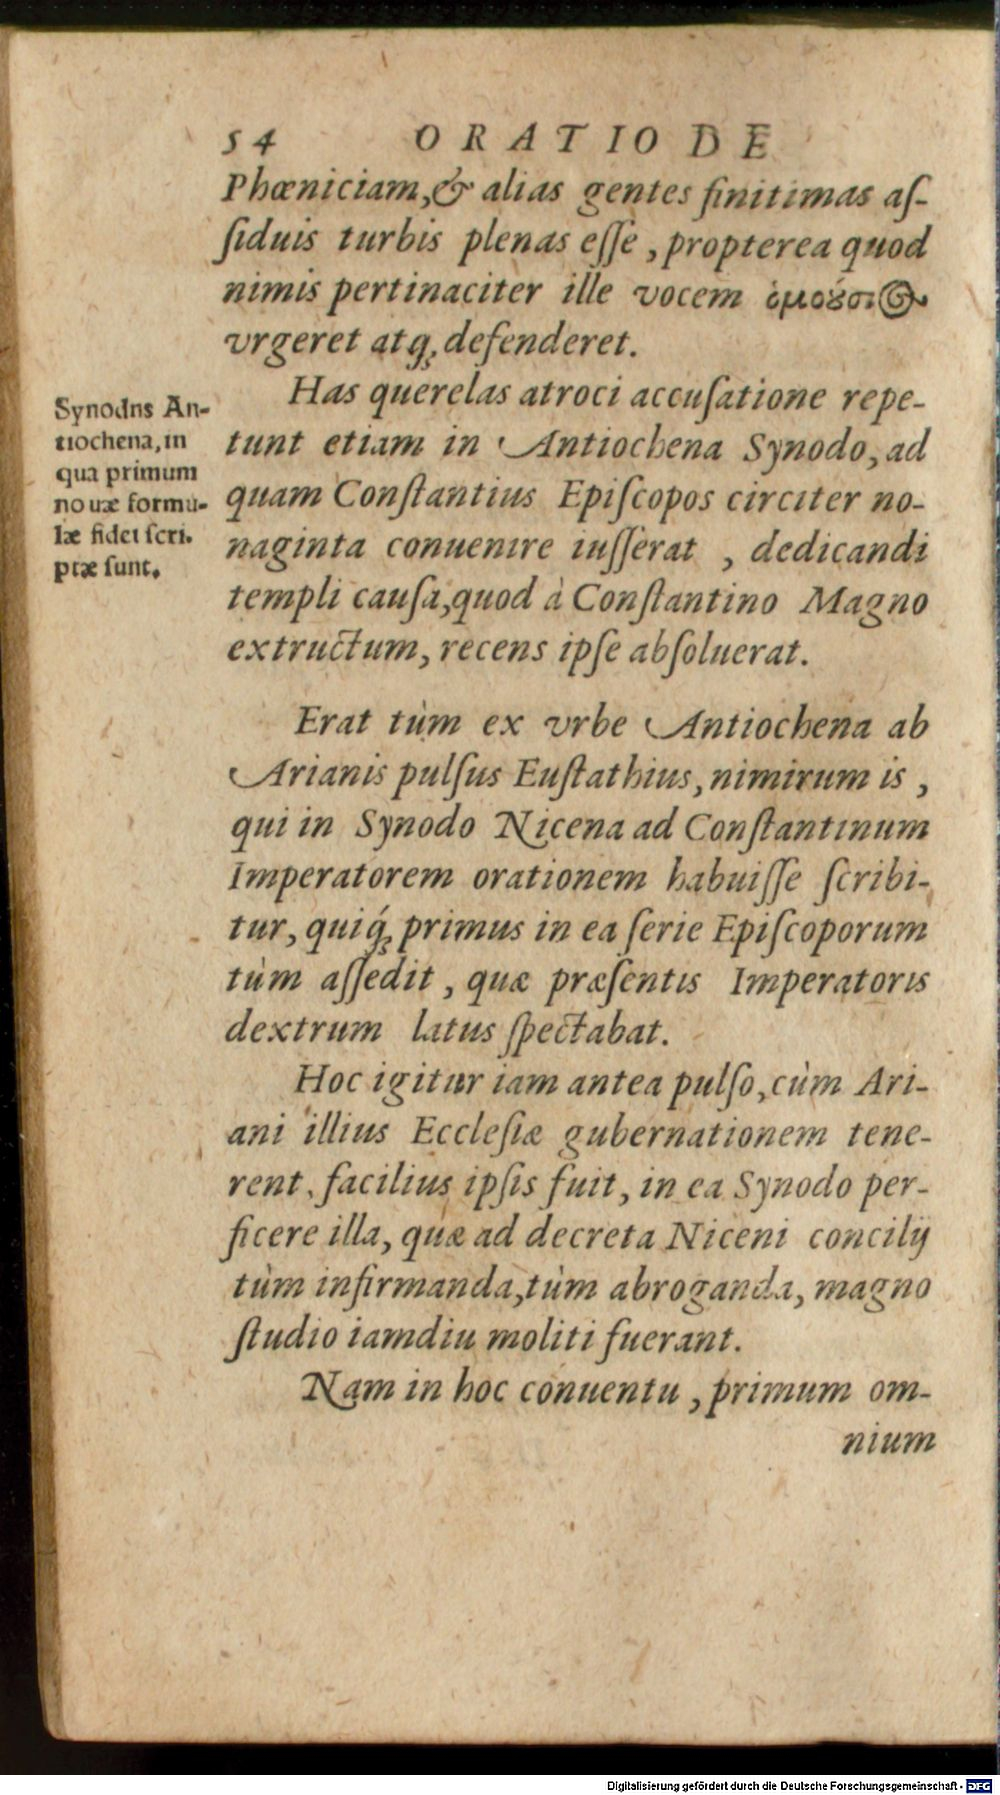 54 ORATIO DE
Phœniciam, & alias gentes finitimas aſ-
ſiduis turbis plenas eſſe, propterea quod
nimis pertinaciter ille vocem ὁμούσιος
vrgeret atq; defenderet.
Has querelas atroci accuſatione repe-
tunt etiam in Antiochena Synodo, ad
quam Conſtantius Epiſcopos circiter no-
naginta conuenire iuſſerat, dedicandi
templi cauſa, quod à Conſtantino Magno
extructum, recens ipſe abſoluerat.
Synodns An-
tiochena, in
qua primum
nouæ formu-
læ fidei ſcri.
ptæ ſunt.
Erat tùm ex vrbe Antiochena ab
Arianis pulſus Euſtathius, nimirum is,
qui in Synodo Nicena ad Conſtantinum
Imperatorem orationem habuiſſe ſcribi-
tur, quiq́; primus in ea ſerie Epiſcoporum
tùm aſſedit, quæ præſentis Imperatoris
dextrum latus ſpectabat.
Hoc igitur iam antea pulſo, cùm Ari-
ani illius Eccleſiæ gubernationem tene-
rent, facilius ipſis fuit, in ea Synodo per-
ficere illa, quæ ad decreta Niceni concilij
tùm infirmanda, tùm abroganda, magno
ſtudio iamdiu moliti fuerant.
Nam in hoc conuentu, primum om-
nium
Digitalisierung gefördert durch die Deutsche Forschungsgemeinschaft - DFG